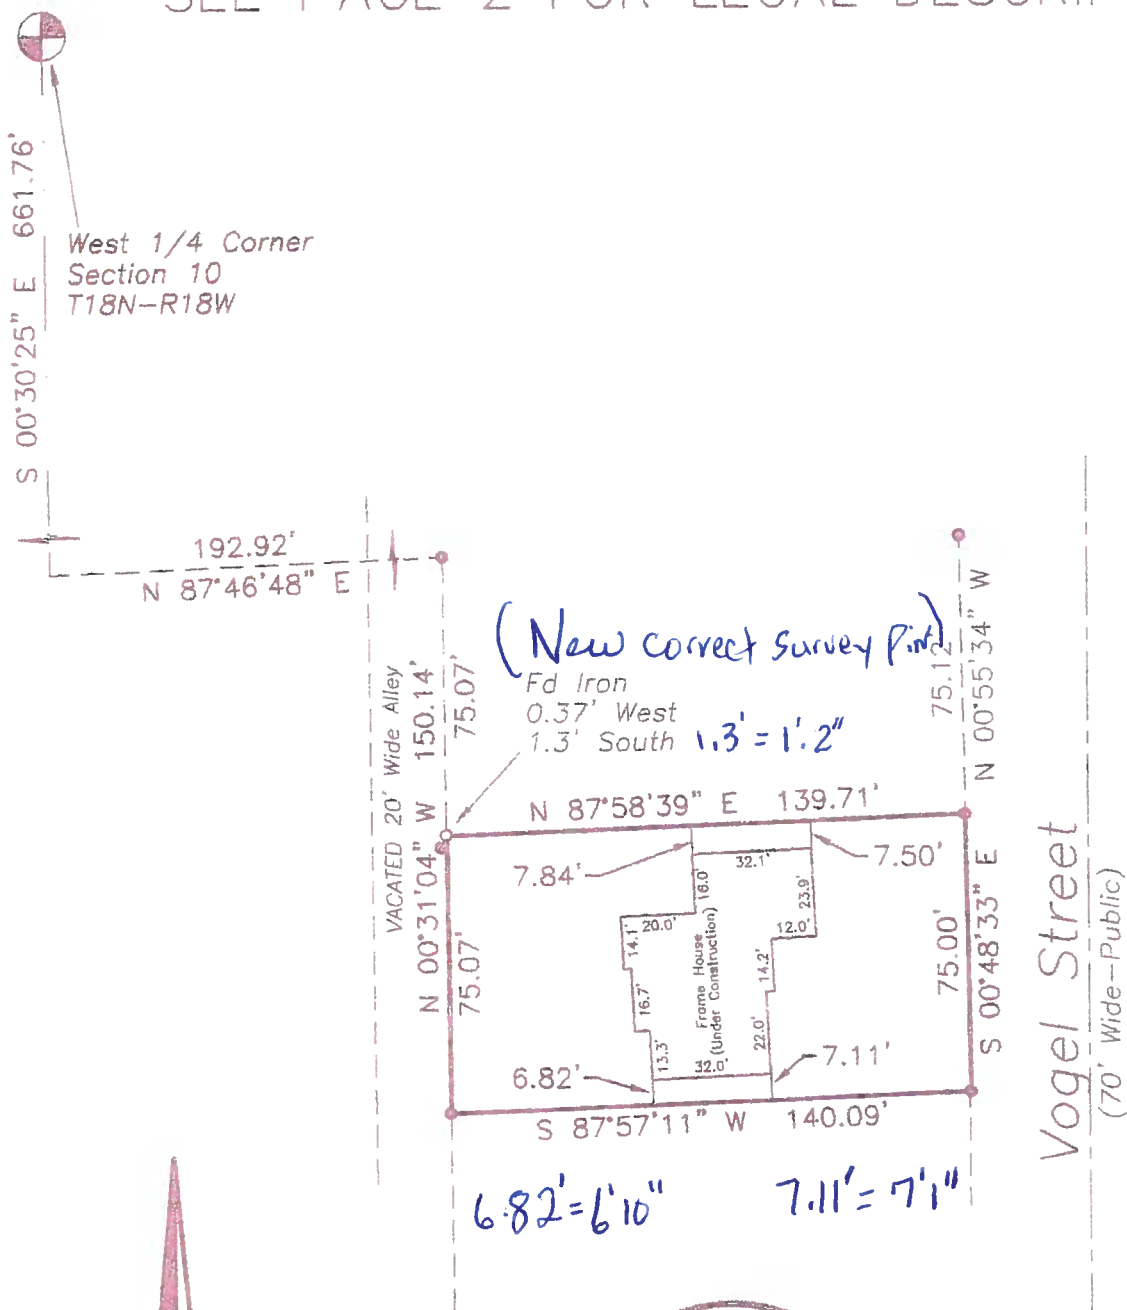 SEE PAGE 2 FOR LEGAL
S 00°30'25" E 661.76'
West 1/4 Corner
Section 10
T18N-R18W
192.92'
N 87°46'48" E
VACATED 20' Wide Alley
N 00°31'04" W 150.14'
75.07'
75.07'
(New correct survey
Fd Iron
0.37' West
1.3' South 1.3' = 1'.2"
75.12'
N 00°55'34" W
N 87°58'39" E 139.71'
7.84'
7.50'
32.1'
16.0'
23.9'
20.0'
12.0'
14.1'
14.2'
16.7'
22.0'
13.3'
32.0'
Frame House
(Under Construction)
6.82'
7.11'
75.00'
S 00°48'33" E
S 87°57'11" W 140.09'
Vogel Street
(70' Wide-Public)
6.82' = 6'10" 7.11' = 7'1"